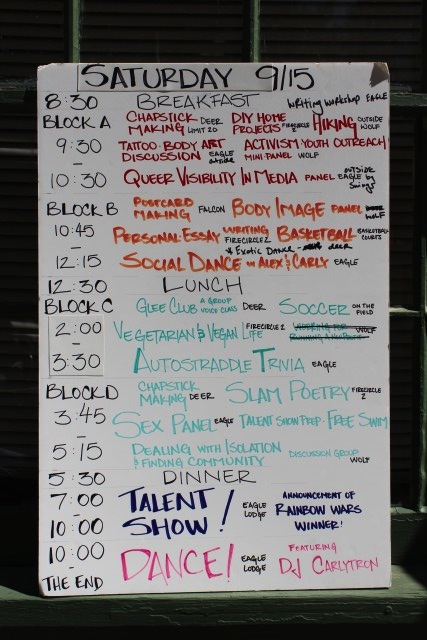 SATURDAY 9/15
8:30 BREAKFAST Writing Workshop EAGLE
BLOCK A CHAPSTICK MAKING DEER LIMIT 20 DIY HOME PROJECTS FIRECIRCLE HIKING OUTSIDE WOLF
9:30 TATTOO·BODY ART DISCUSSION EAGLE outside ACTIVISM YOUTH OUTREACH MINI PANEL WOLF
–
10:30 QUEER VISIBILITY IN MEDIA PANEL outside EAGLE by Swings
BLOCK B POSTCARD MAKING FALCON BODY IMAGE PANEL WOLF
10:45 PERSONAL ESSAY WRITING FIRECIRCLE 2 BASKETBALL BASKETBALL COURTS
– & Exotic Dance deer
12:15 SOCIAL DANCE W/ ALEX & CARLY EAGLE
12:30 LUNCH
BLOCK C GLEE CLUB A GROUP VOICE CLASS DEER SOCCER ON THE FIELD
2:00 VEGETARIAN & VEGAN LIFE FIRECIRCLE 2 WORKING FOR WOLF
–
3:30 AUTOSTRADDLE TRIVIA EAGLE
BLOCK D CHAPSTICK MAKING DEER SLAM POETRY FIRECIRCLE 2
3:45 SEX PANEL EAGLE TALENT SHOW PREP·FREE SWIM
–
5:15 DEALING WITH ISOLATION & FINDING COMMUNITY DISCUSSION GROUP WOLF
5:30 DINNER
7:00 TALENT SHOW! EAGLE LODGE ANNOUNCEMENT OF RAINBOW WARS WINNER!
–
10:00
10:00 DANCE! EAGLE LODGE FEATURING DJ CARLYTRON
–
THE END